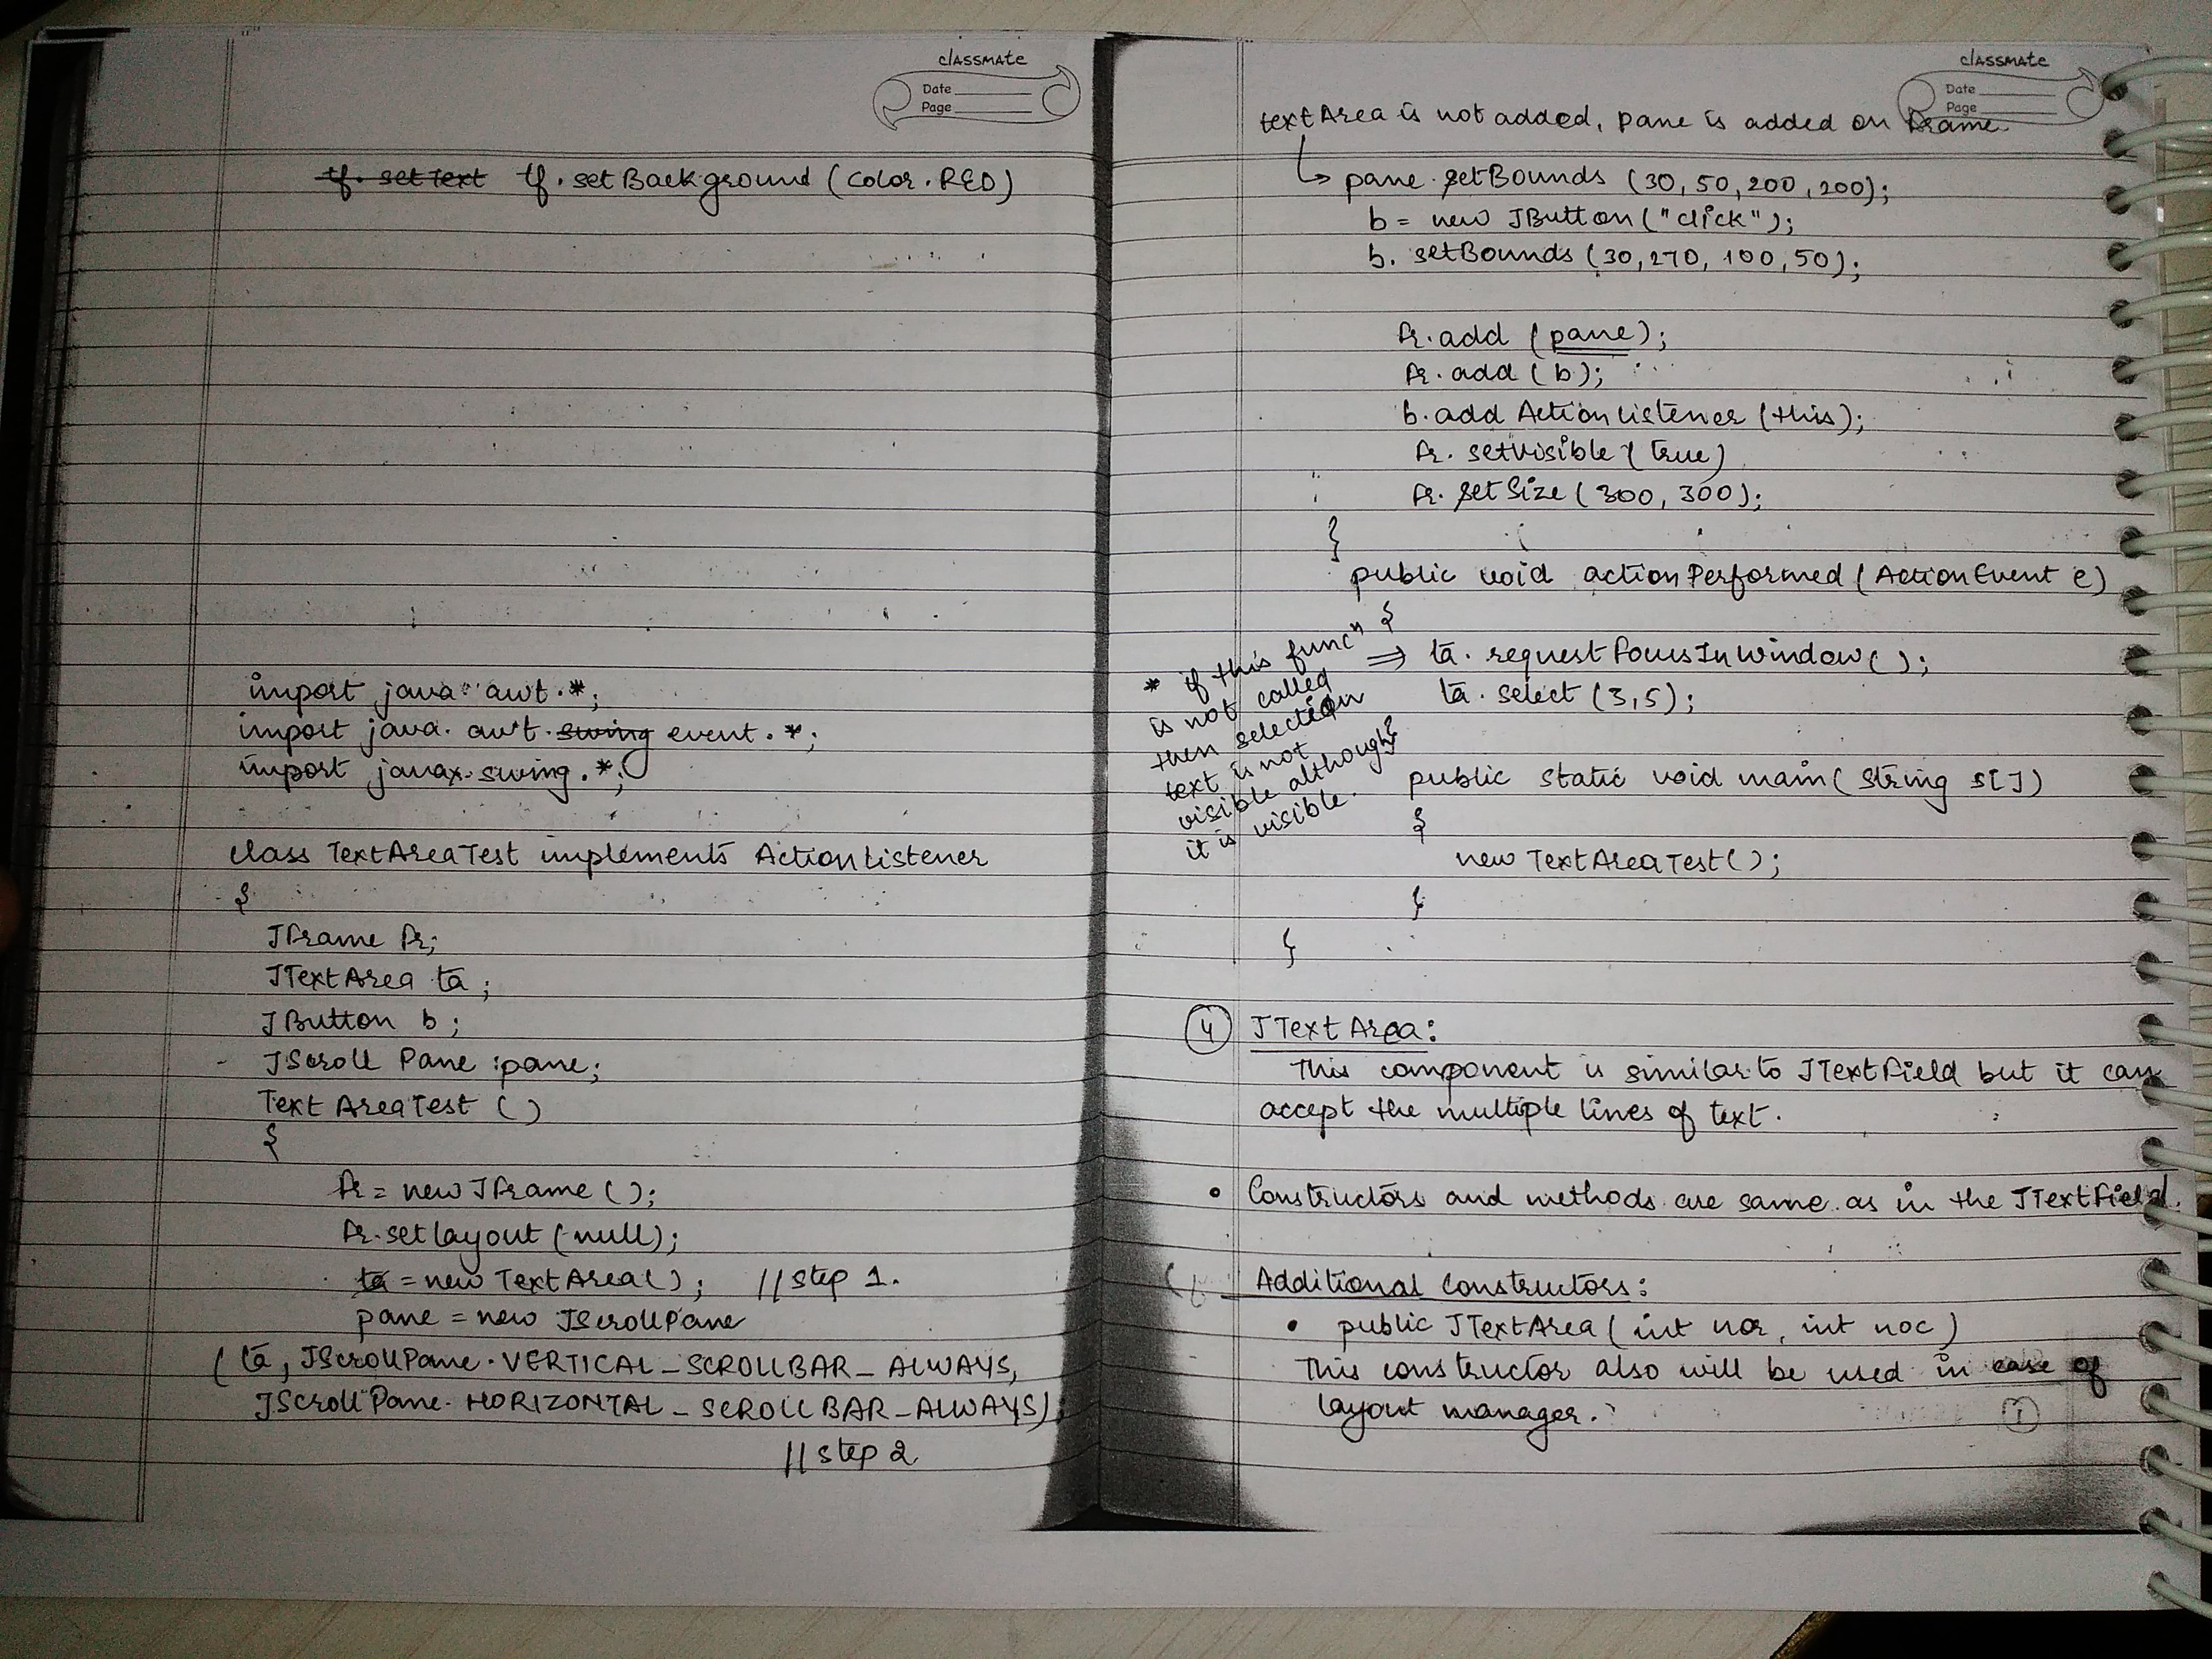 classmate
Date
Page
tf. setText tf. setBackground (Color.RED)
import java. awt.*;
import java. awt. swing event.*;
import javax.swing.*;
class TextAreaTest implements ActionListener
{
JFrame fr;
JTextArea ta;
JButton b;
JScroll Pane pane;
Text AreaTest ()
{
fr = new JFrame ();
fr.setlayout (null);
ta = new TextArea(); //step 1.
pane = new JScrollPane
(ta, JScrollPane.VERTICAL_SCROLLBAR_ALWAYS,
JScrollPane.HORIZONTAL_SCROLLBAR_ALWAYS);
//step 2
classmate
Date
Page
textArea is not added, pane is added on frame.
pane.setBounds (30, 50, 200, 200);
b = new JButton ("click");
b. setBounds (30, 270, 100, 50);
fr.add (pane);
fr.add (b);
b.add ActionListener (this);
fr. setVisible (true)
fr. setSize (300, 300);
}
public void actionPerformed (ActionEvent e)
{
⇒ ta. requestFocusInWindow ();
ta. select (3,5);
* if this funcn
is not called
then selection
text is not
visible although
it is visible.
}
public static void main( String s[])
{
new TextAreaTest ();
}
}
4 JTextArea:
This component is similar to JTextField but it can
accept the multiple lines of text.
• Constructors and methods are same as in the JTextField.
Additional Constructors:
• public JTextArea ( int nor, int noc )
This constructor also will be used in case of
layout manager.